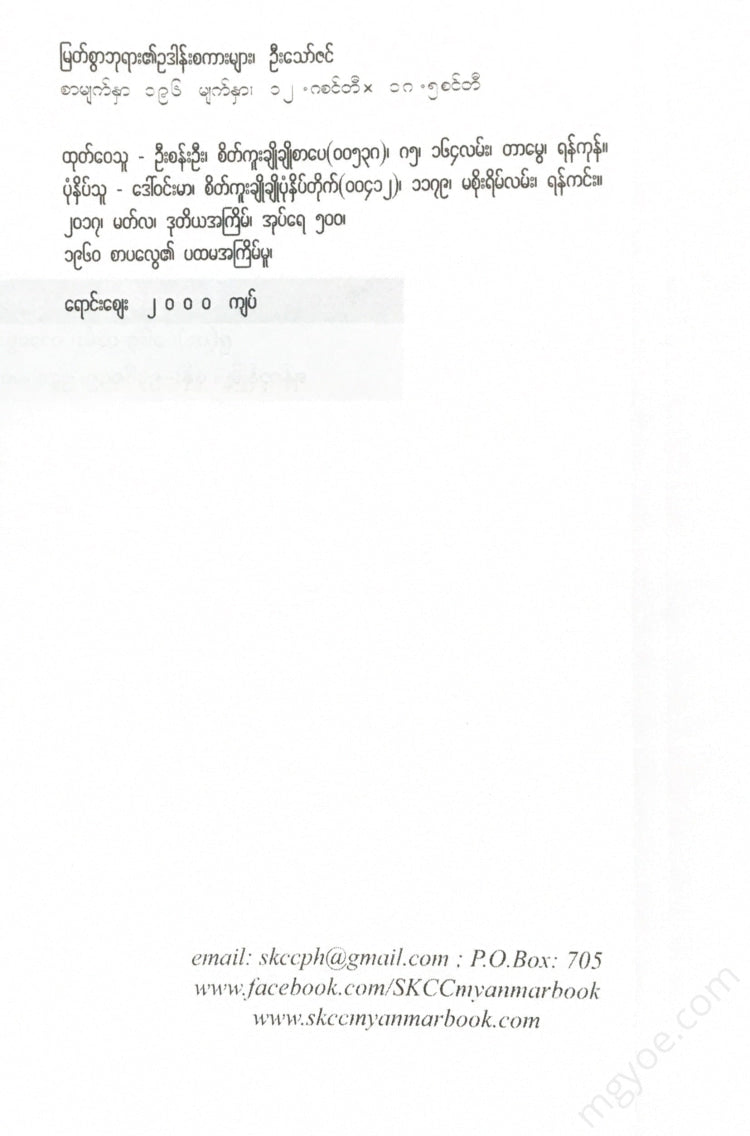 မြတ်စွာဘုရား၏ဥဒါန်းစကားများ၊ ဦးသော်ဇင်
စာမျက်နှာ ၁၉၆ မျက်နှာ၊ ၁၂.၈စင်တီ× ၁၈.၅စင်တီ
ထုတ်ဝေသူ - ဦးစန်းဦး၊ စိတ်ကူးချိုချိုစာပေ(၀၀၅၃၈)၊ ၈၅၊ ၁၆၄လမ်း၊ တာမွေ၊ ရန်ကုန်။
ပုံနှိပ်သူ - ဒေါ်ဝင်းမာ၊ စိတ်ကူးချိုချိုပုံနှိပ်တိုက်(၀၀၄၁၂)၊ ၁၁၇၉၊ မစိုးရိမ်လမ်း၊ ရန်ကင်း။
၂၀၁၇၊ မတ်လ၊ ဒုတိယအကြိမ်၊ အုပ်ရေ ၅၀၀၊
၁၉၆၀ စာပလွေ၏ ပထမအကြိမ်မူ၊
ရောင်းဈေး ၂၀၀၀ ကျပ်
email: skccph@gmail.com ; P.O.Box: 705
www.facebook.com/SKCCmyanmarbook
www.skccmyanmarbook.com
mgyoe.com